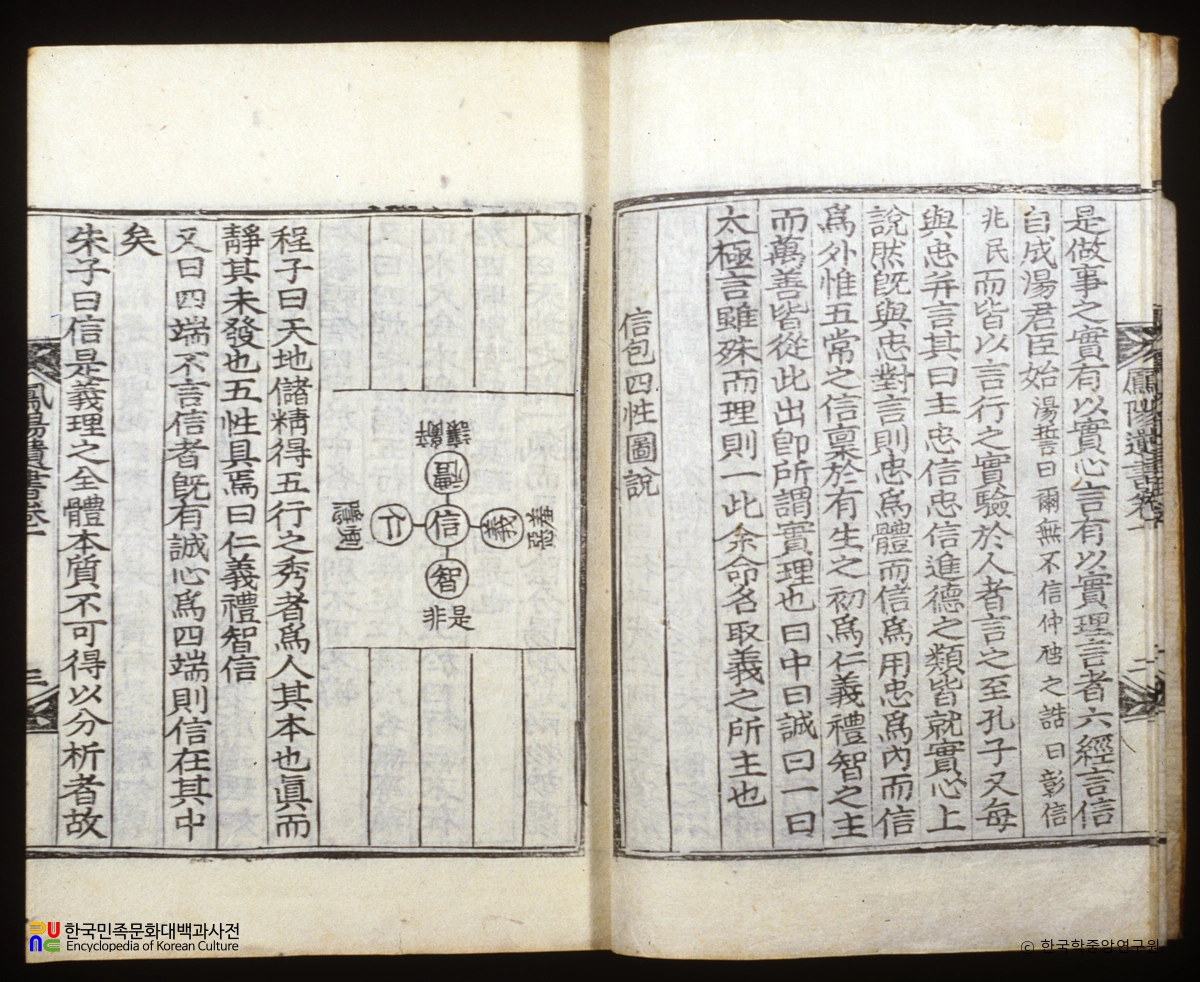 鳳陽遺書卷一
二
是做事之實有以實心言有以實理言者六經言信
自成湯君臣始湯誓曰爾無不信仲虺之誥曰彰信
兆民而皆以言行之實驗於人者言之至孔子又每
與忠并言其曰主忠信忠信進德之類皆就實心上
說然旣與忠對言則忠爲體而信爲用忠爲內而信
爲外惟五常之信稟於有生之初爲仁義禮智之主
而萬善皆從此出卽所謂實理也曰中曰誠曰一曰
太極言雖殊而理則一此余命名取義之所主也
信包四性圖說
辭讓
禮
羞惡
義
信
仁
惻隱
智
是非
程子曰天地儲精得五行之秀者爲人其本也眞而
靜其未發也五性具焉曰仁義禮智信
又曰四端不言信者旣有誠心爲四端則信在其中
矣
朱子曰信是義理之全體本質不可得以分析者故
鳳陽遺書卷一
三
한국민족문화대백과사전
Encyclopedia of Korean Culture
© 한국학중앙연구원